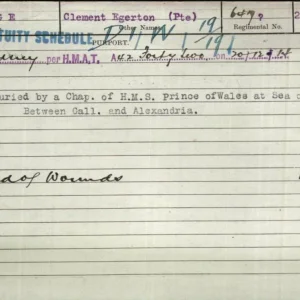 G E Clement Egerton (Pte) 649?
Other Names. Regimental No.
TUITY SCHEDULE
PURPORT.
per H.M.A.T. A42
uried by a Chap. of H.M.S. Prince ofWales at Sea
Between Gall. and Alexandria.
d of Wounds